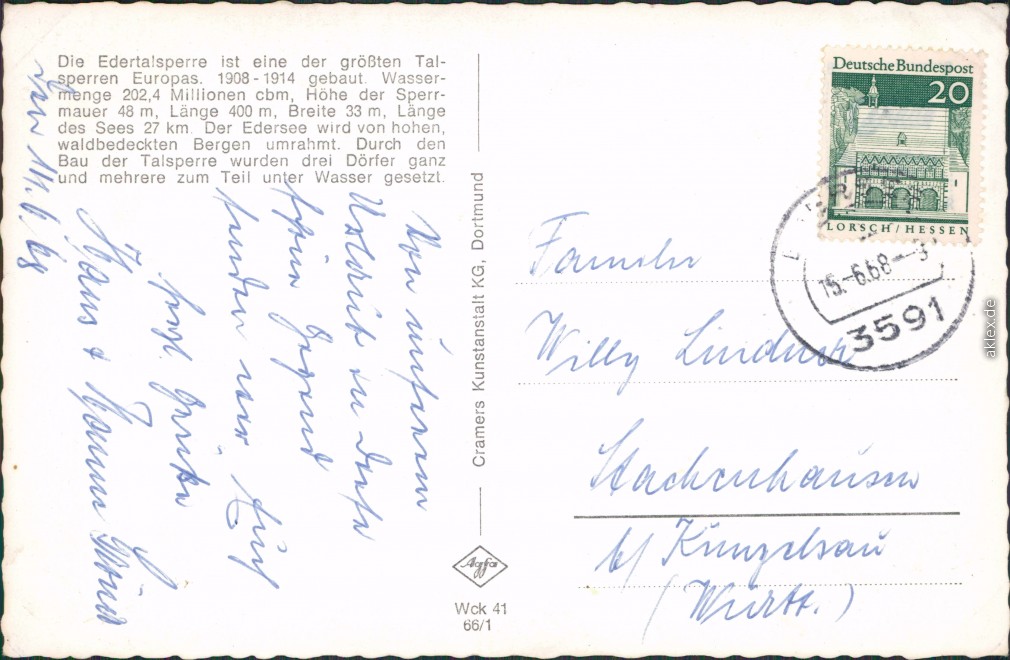 Die Edertalsperre ist eine der größten Tal-
sperren Europas. 1908-1914 gebaut. Wasser-
menge 202,4 Millionen cbm, Höhe der Sperr-
mauer 48 m, Länge 400 m, Breite 33 m, Länge
des Sees 27 km. Der Edersee wird von hohen,
waldbedeckten Bergen umrahmt. Durch den
Bau der Talsperre wurden drei Dörfer ganz
und mehrere zum Teil unter Wasser gesetzt.
Von unserem
Urlaub in dieser
schönen Gegend
senden wir Euch
herzl. Grüße
Hans &
14.6.68
Cramers Kunstanstalt KG, Dortmund
Agfa
Wck 41
66/1
Deutsche Bundespost
20
LORSCH/HESSEN
15.-6.68
3591
Familie
Willy Lindner
Stachenhausen
b/ Künzelsau
(Württ.)
aklex.de